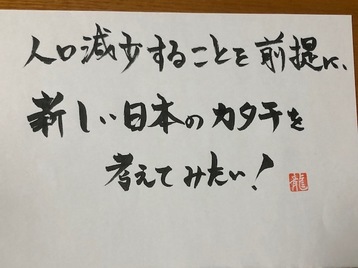 人口減少することを前提に、
新しい日本のカタチを
考えてみたい!
龍